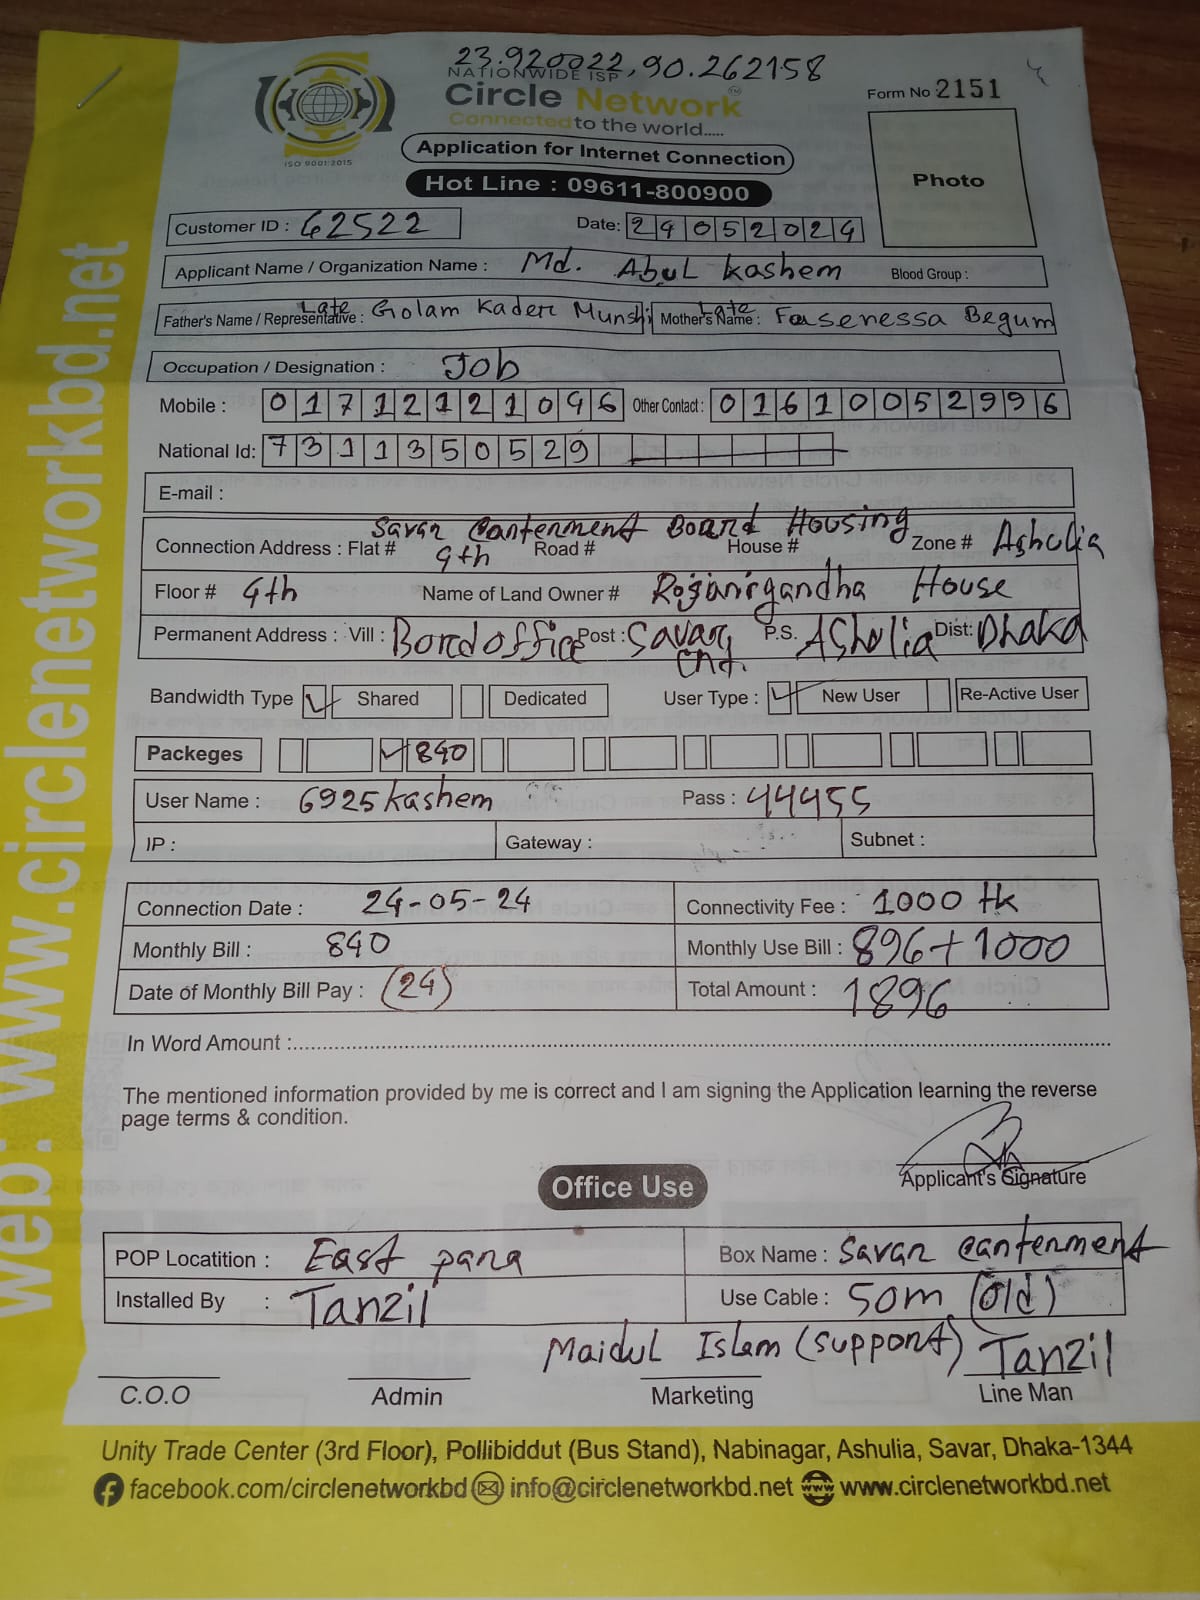 23.920022, 90.262158
NATIONWIDE ISP
Circle Network™
Connected to the world.....
Form No 2151
ISO 9001:2015
Application for Internet Connection
Hot Line : 09611-800900
Photo
Customer ID : 62522 Date: 24052024
Applicant Name / Organization Name : Md. Abul Kashem Blood Group :
Father's Name / Representative : Late Golam Kader Munshi Mother's Name : Late Fasenessa Begum
Occupation / Designation : Job
Mobile : 01712121096 Other Contact : 01610052996
National Id: 7311350529
E-mail :
Savar Canterment Board Housing
Connection Address : Flat # 9th Road # House # Zone # Ashulia
Floor # 9th Name of Land Owner # Rojanigandha House
Permanent Address : Vill : Bord office Post : Savar Cnt. P.S. Ashulia Dist: Dhaka
Bandwidth Type Shared Dedicated User Type : New User Re-Active User
Packeges 840
User Name : 6925kashem Pass : 44455
IP : Gateway : Subnet :
Connection Date : 24-05-24 Connectivity Fee : 1000 tk
Monthly Bill : 840 Monthly Use Bill : 896+1000
Date of Monthly Bill Pay : (24) Total Amount : 1896
In Word Amount :
The mentioned information provided by me is correct and I am signing the Application learning the reverse
page terms & condition.
Applicant's Signature
Office Use
POP Locatition : East para Box Name : Savar Canterment
Installed By : Tanzil Use Cable : 50m (old)
Maidul Islam (support) Tanzil
C.O.O Admin Marketing Line Man
Unity Trade Center (3rd Floor), Pollibiddut (Bus Stand), Nabinagar, Ashulia, Savar, Dhaka-1344
facebook.com/circlenetworkbd info@circlenetworkbd.net www.circlenetworkbd.net
web: www.circlenetworkbd.net